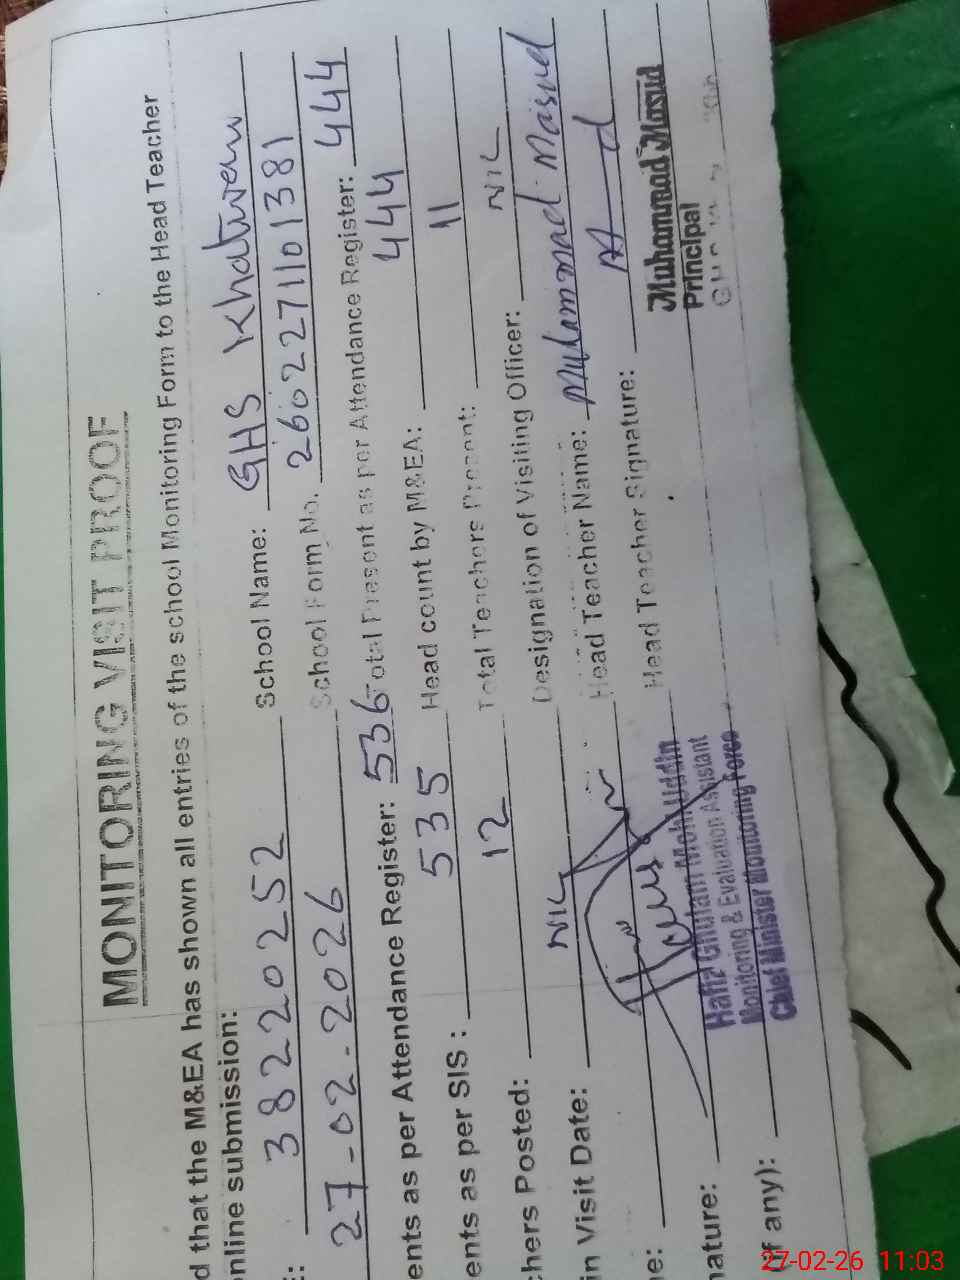 MONITORING VISIT PROOF
d that the M&EA has shown all entries of the school Monitoring Form to the Head Teacher
online submission:
E: 38220252 School Name: GHS Khatwan
27-02-2026 School Form No. 2602271101381
ents as per Attendance Register: 536 Total Present as per Attendance Register: 444
ents as per SIS : 535 Head count by M&EA: 444
chers Posted: 12 Total Teachers Present: 11
in Visit Date: NIL Designation of Visiting Officer: NIL
ne: Head Teacher Name: Muhammad Masud
nature: Head Teacher Signature:
Hafiz Ghulam Mohi Uddin
Monitoring & Evaluation Assistant
Chief Minister Monitoring Force
Muhammad Masud
Principal
(if any):
27-02-26 11:03